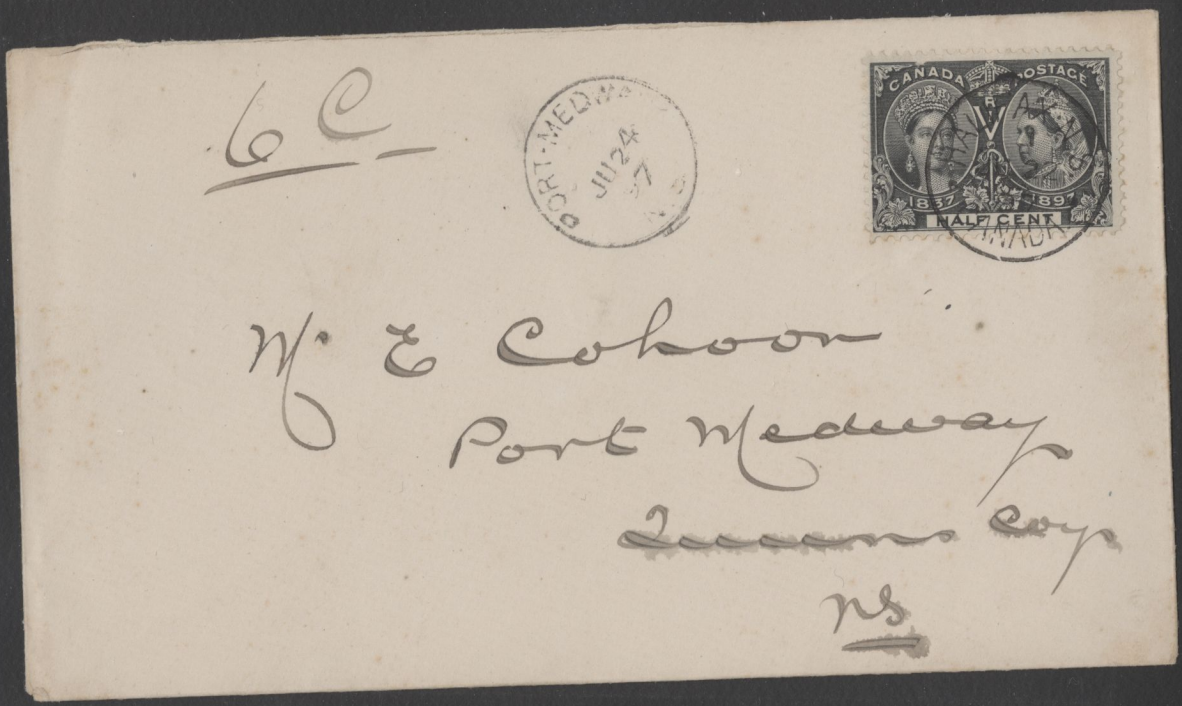 6 C
PORT-MEDWAY
JU 24
97
N.S.
CANADA POSTAGE
V R
1837 1897
HALF CENT
HALIFAX N.S
CANADA
Mr E Cohoon
Port Medway
Queens Coy
NS